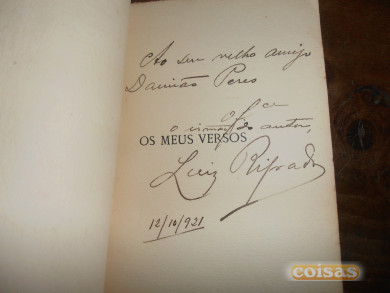 Ao seu velho amigo
Damião Peres
o irmão do autor,
OS MEUS VERSOS
Luiz
12/10/921
coisas